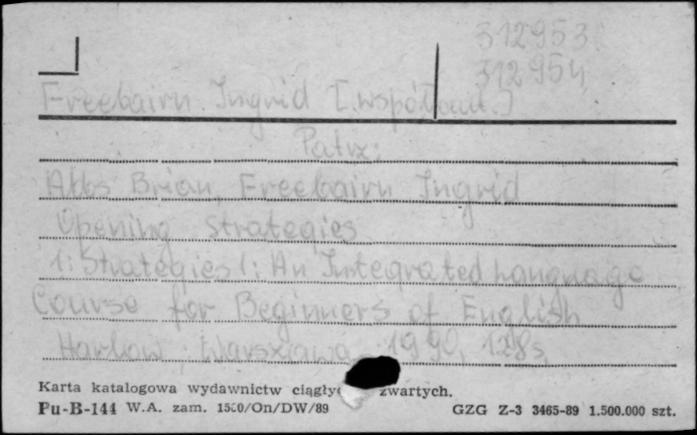 512953
312954
Freebairn Ingrid [współaut.]
Patrz:
Abbs Brian, Freebairn Ingrid
Opening Strategies
1: Strategies 1: An Integrated Language
Course for Beginners of English
Harlow ; Warszawa 1990, 128 s.
Karta katalogowa wydawnictw zwartych.
Pu-B-144 W.A. zam. /On/DW/89 GZG Z-3 3465-89 1.500.000 szt.